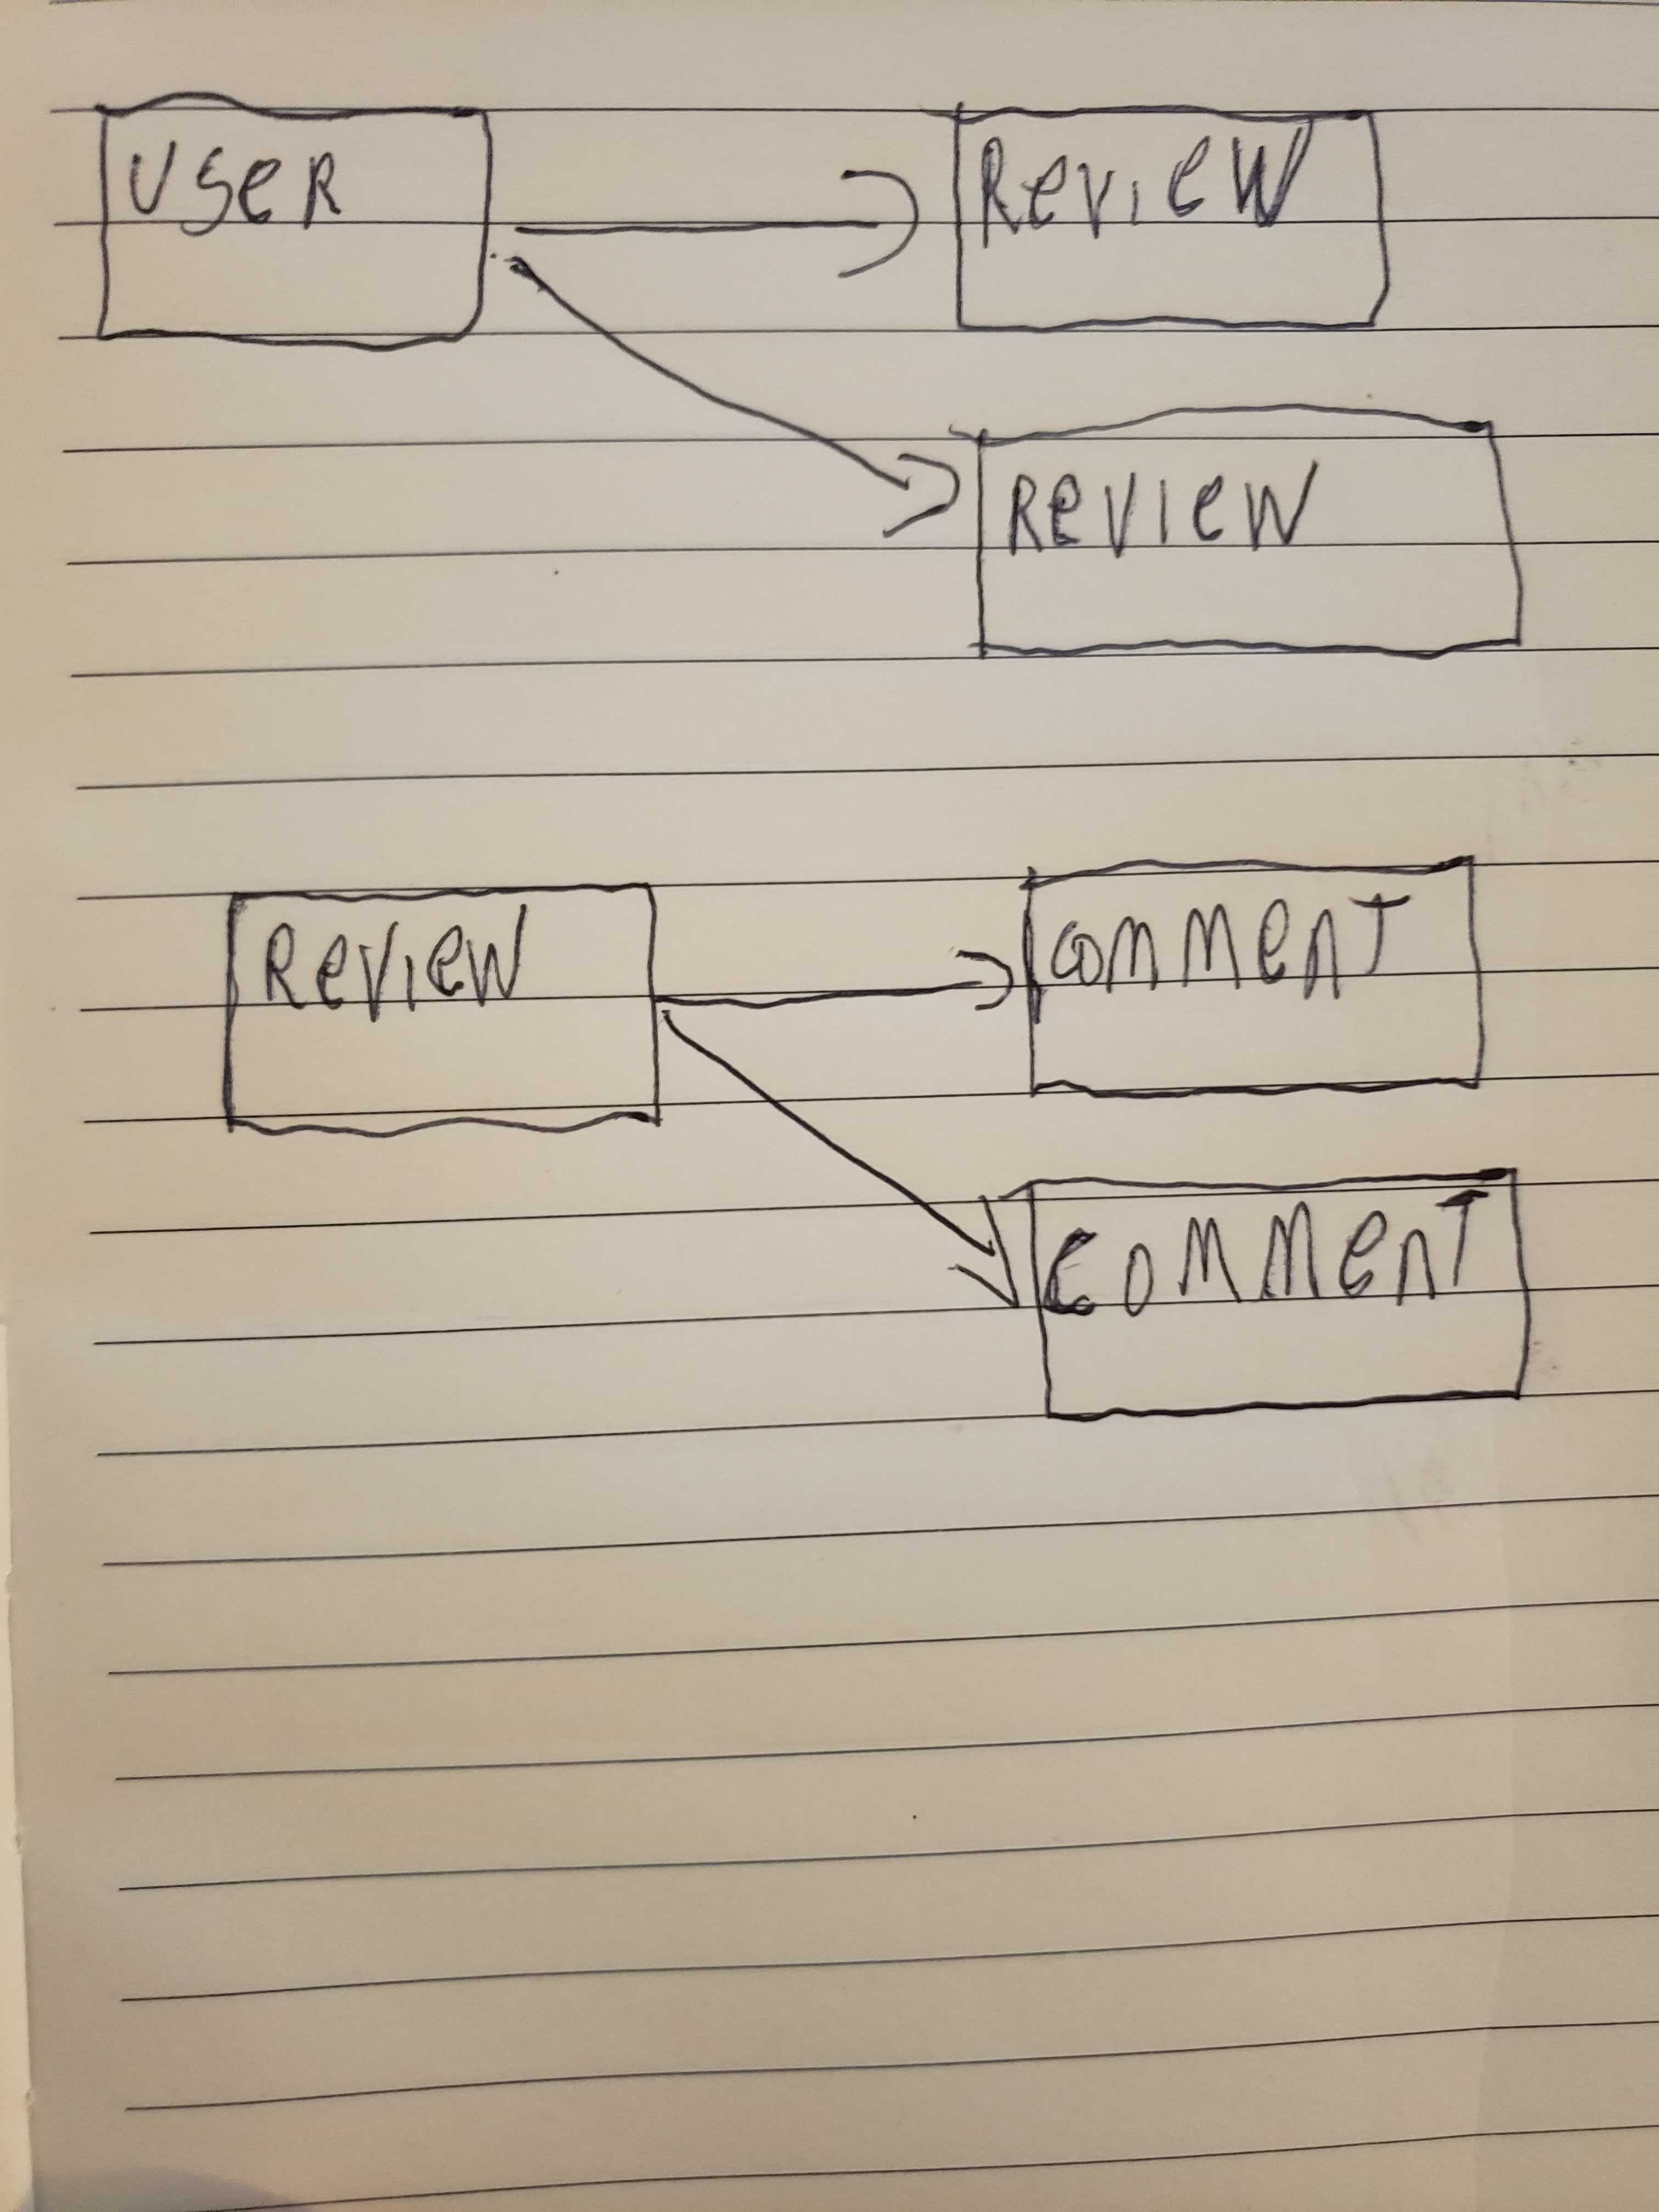 User Review
Review
Review Comment
Comment